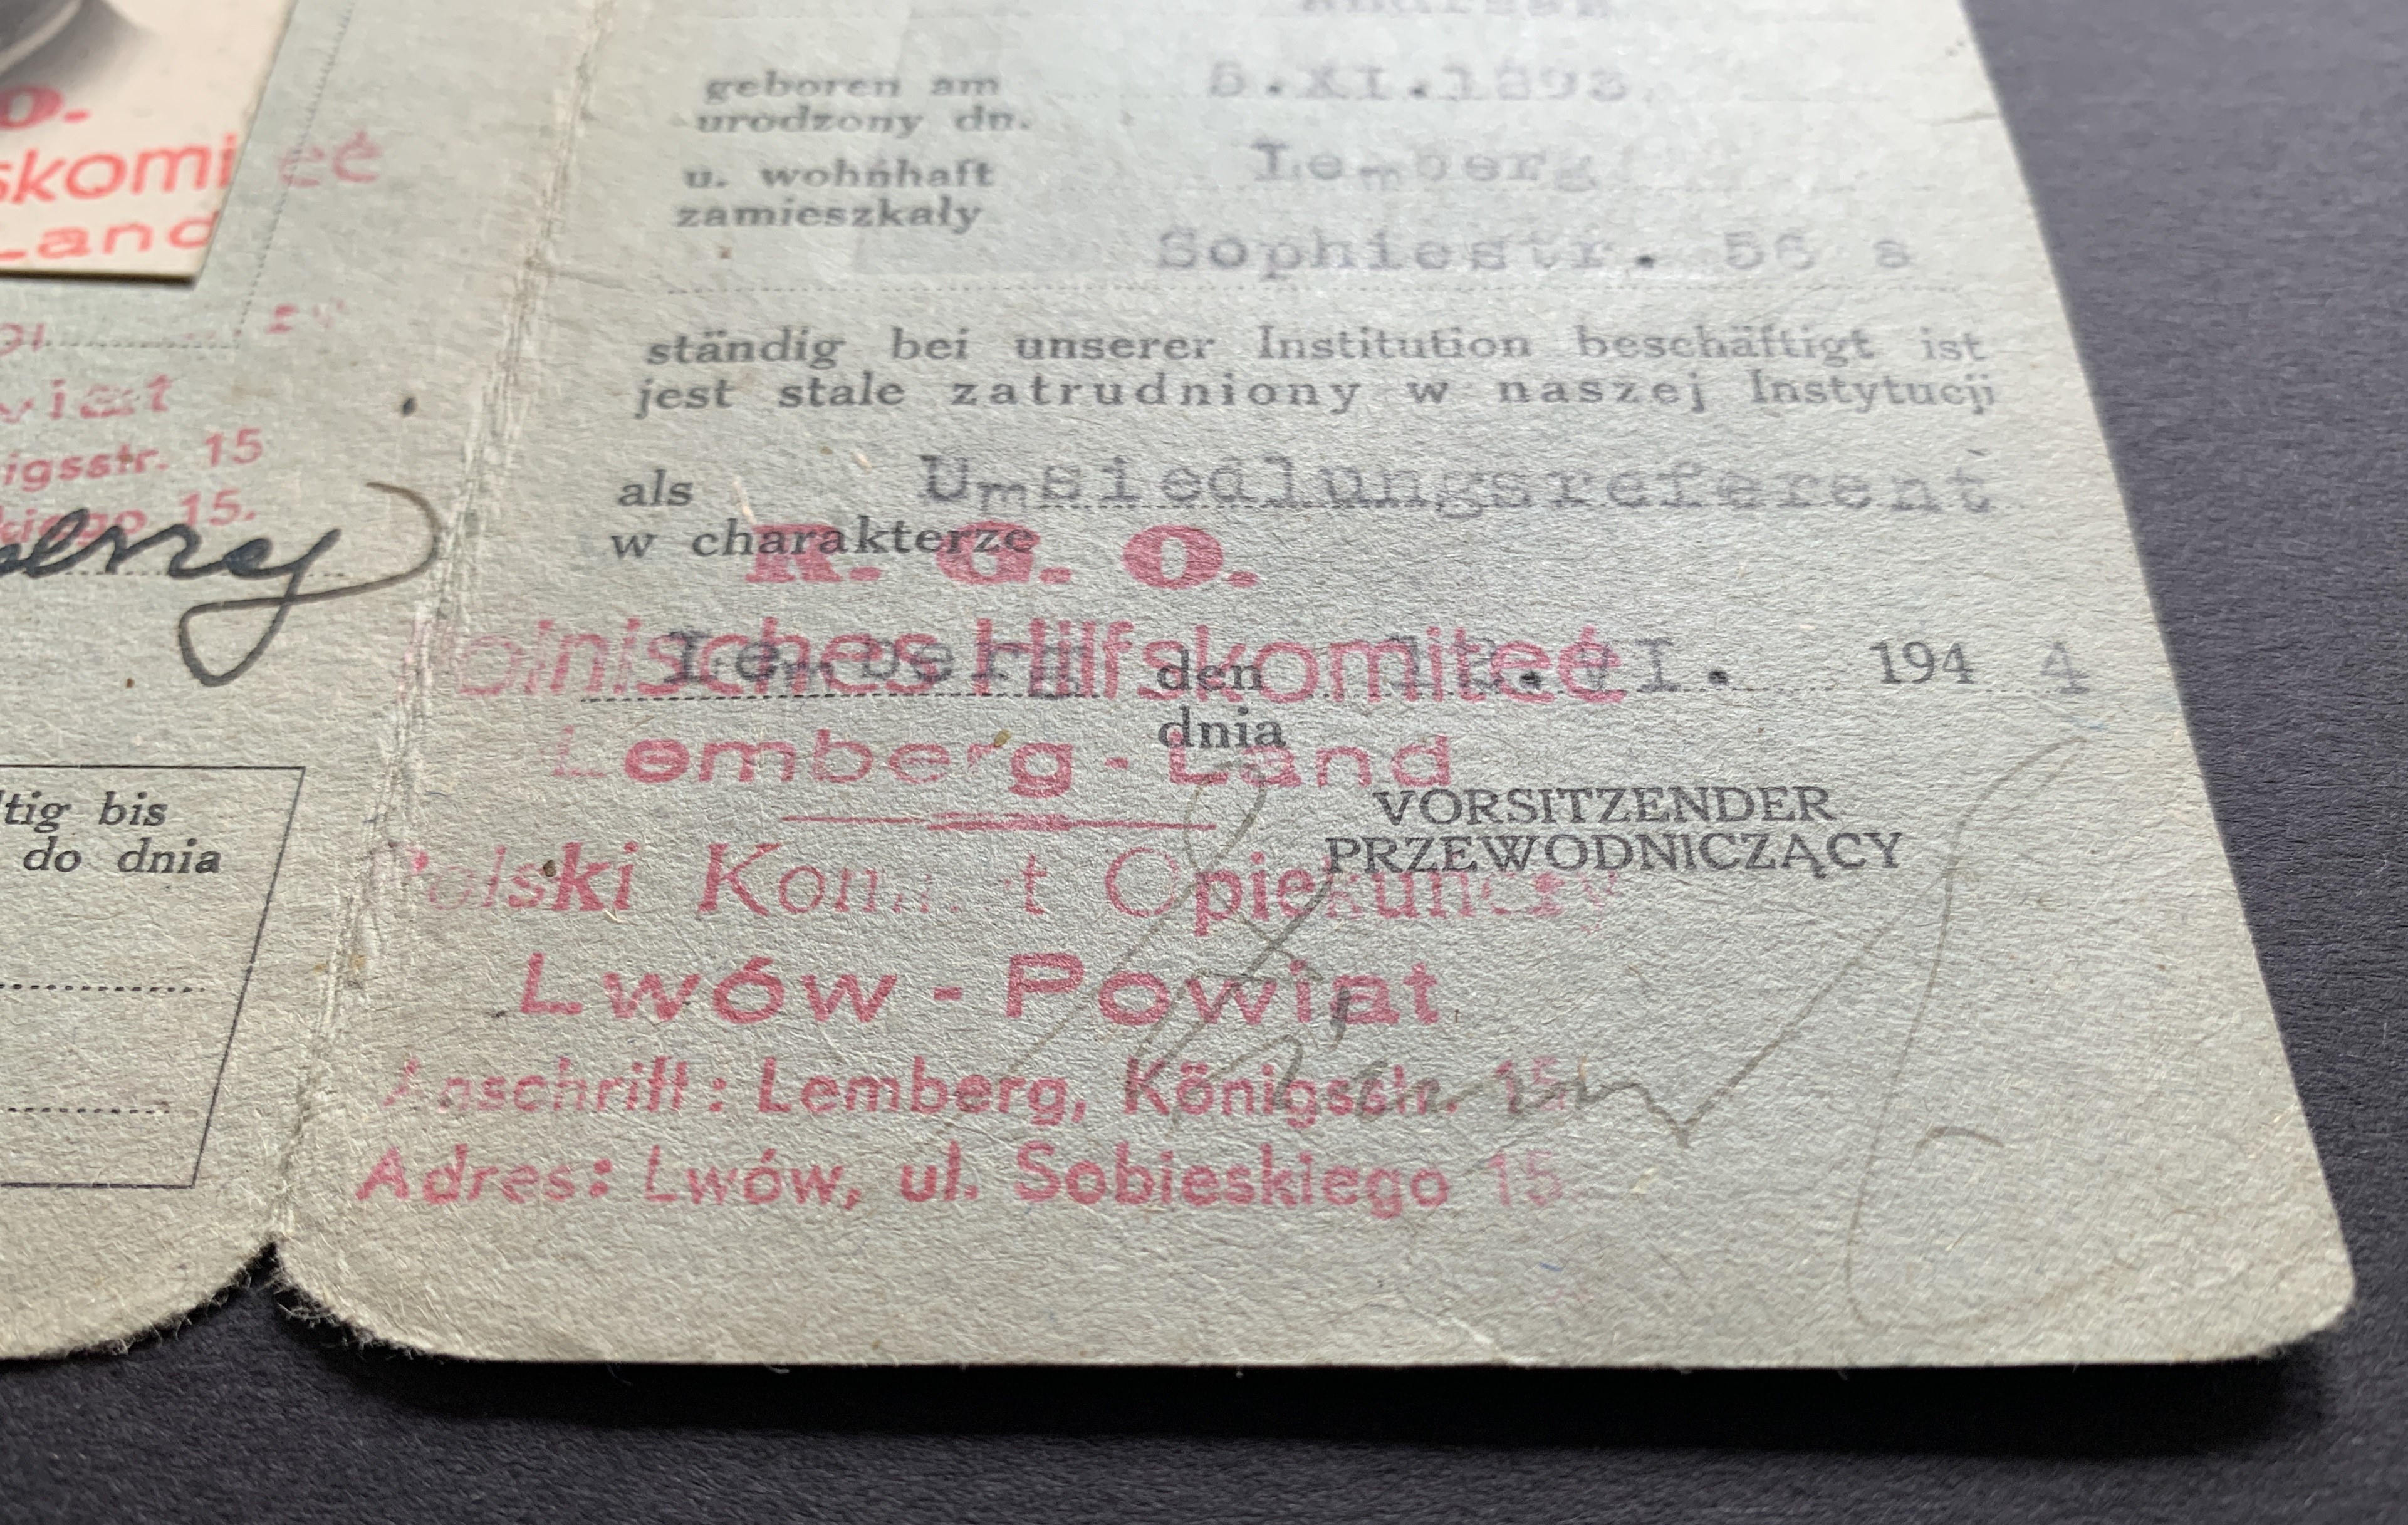 O.
skomiteé
Land
wiat
igsstr. 15
kiego 15.
tig bis
do dnia
geboren am
urodzony dn.
XI.1893.
u. wohnhaft
zamieszkały
Lemberg
Sophiestr. 56 a
ständig bei unserer Institution beschäftigt ist
jest stale zatrudniony w naszej Instytucji
als Umsiedlungsreferent
w charakterze
R. G. O.
Lemberg den VI. 194 4
dnia
Polnisches Hilfskomiteé
Lemberg - Land
VORSITZENDER
PRZEWODNICZĄCY
Polski Komitet Opiekuńczy
Lwów - Powiat
Anschrift: Lemberg, Königsstr. 15
Adres: Lwów, ul. Sobieskiego 15.